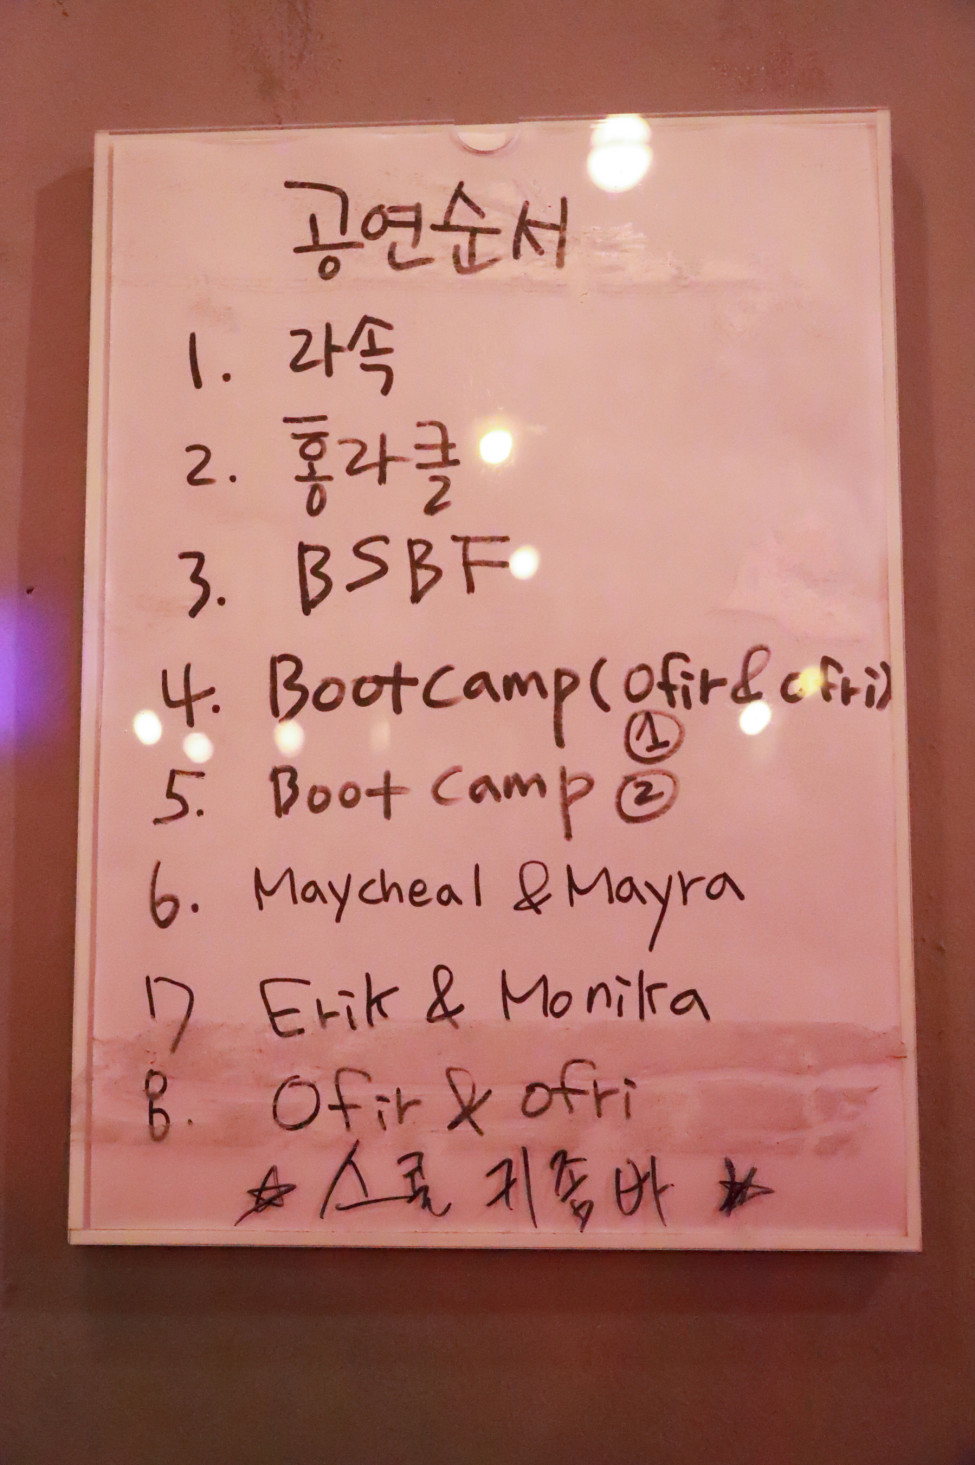 공연순서
1. 라속
2. 홍라클
3. BSBF
4. Bootcamp(Ofir & ofri)
①
5. Boot camp ②
6. Maycheal & Mayra
7 Erik & Monika
8. Ofir & ofri
☆ 스룸 키좀바 ★